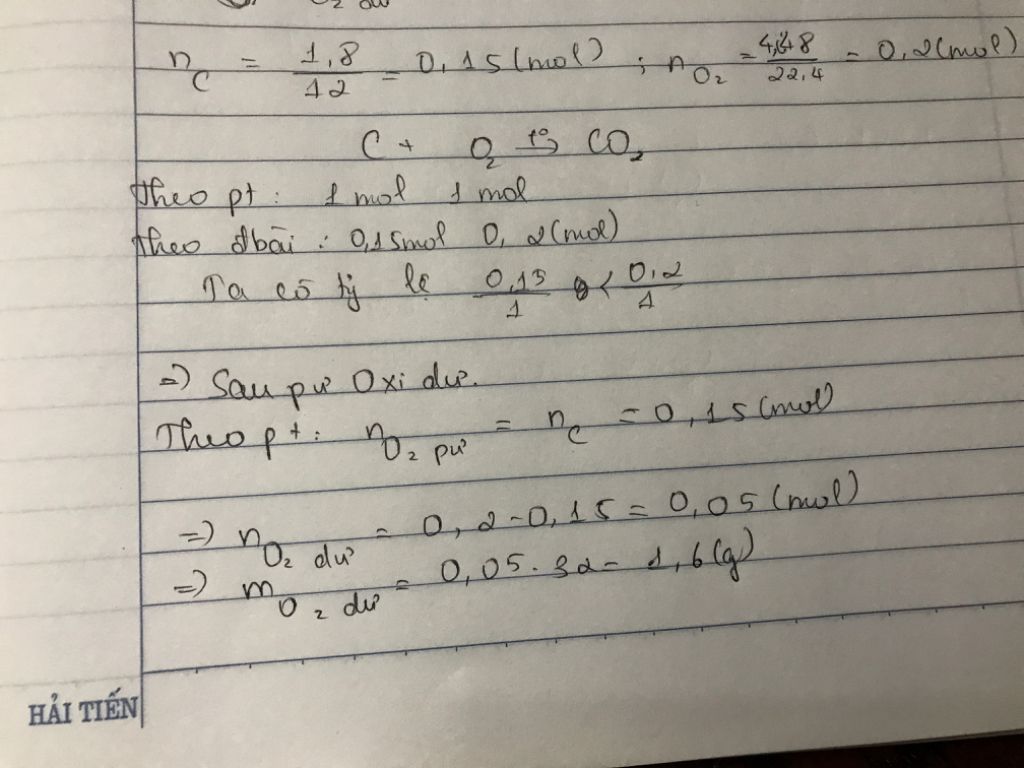 O₂ dư
n_C = 1,8/12 = 0,15(mol) ; n_O₂ = 4,48/22,4 = 0,2(mol)
C + O₂ t°→ CO₂
Theo pt: 1 mol 1 mol
Theo đbài: 0,15mol 0,2(mol)
Ta có tỷ lệ 0,15/1 < 0,2/1
=) Sau pư Oxi dư.
Theo pt: n_O₂ pư = n_C = 0,15(mol)
=) n_O₂ dư = 0,2-0,15 = 0,05(mol)
=) m_O₂ dư = 0,05.32= 1,6(g)
HẢI TIẾN